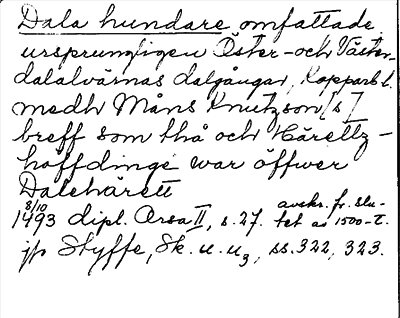 Dala hundare omfattade
ursprungligen Öster- och Väster-
dalälvarnas dalgångar, Kopparb. l.
medh Måns Knutzson [s]
breff som thå och Häretz-
höffdinge war öffwer
Dalehärett
8/10 1493 dipl. Orsa II, s. 27. avskr. fr. slu-
tet av 1500-t.
jfr Styffe, Sk. u. u3, ss. 322, 323.